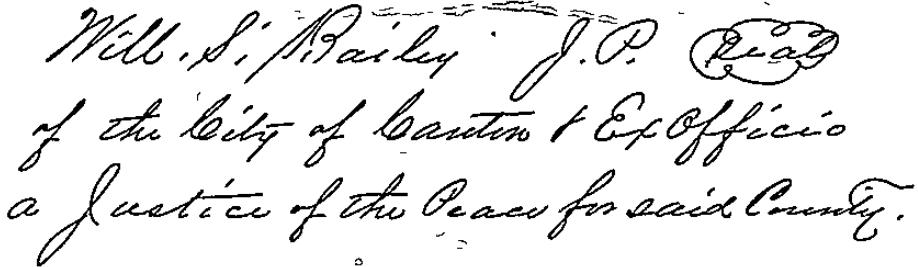 Will. S. Bailey J. P. Seal
of the City of Canton & Ex Officio
a Justice of the Peace for said County.